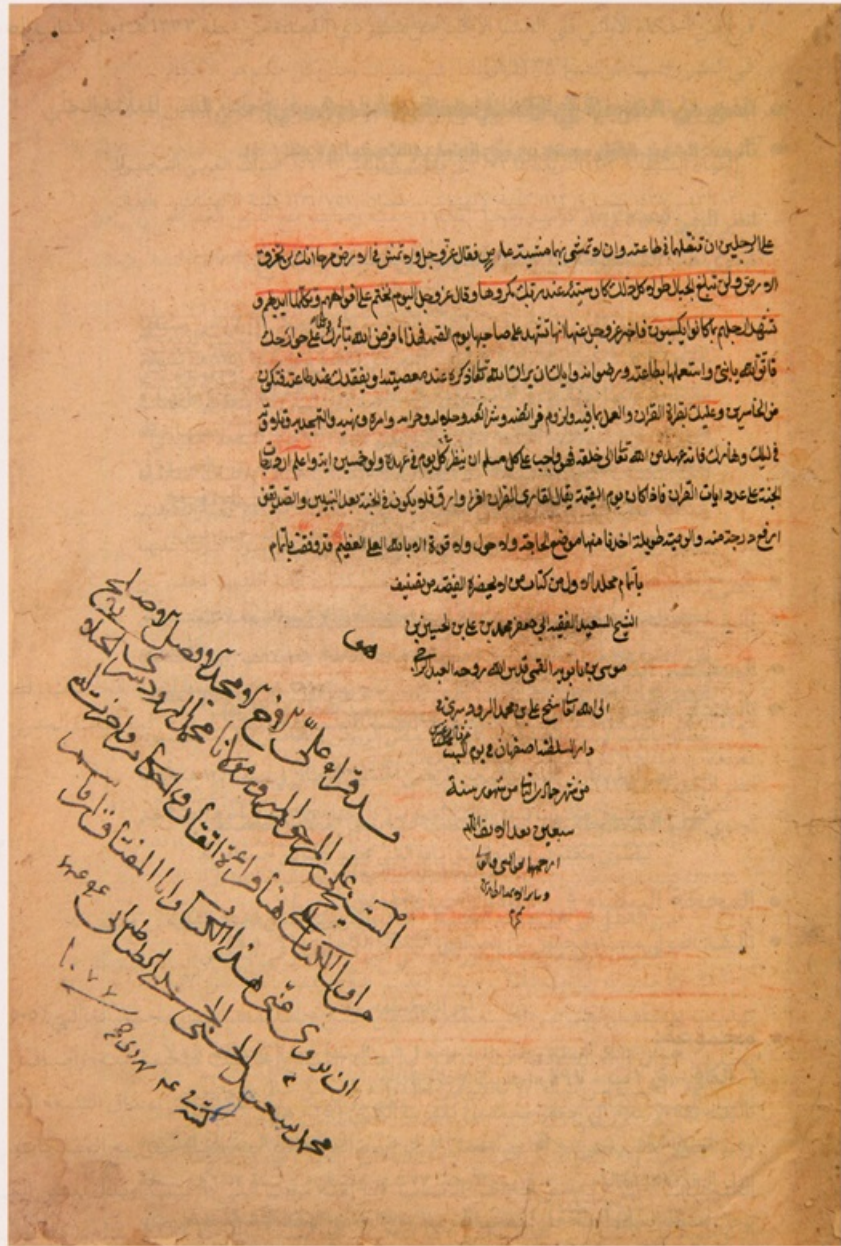 على الرجلين ان تنقلهما في طاعته وان لا تمشي بهما مشية عاص فقال عز وجل ولا تمش في الارض مرحا انك لن تخرق
الارض ولن تبلغ الجبال طولا كل ذلك كان سيئه عند ربك مكروها وقال عز وجل اليوم نختم على افواههم وتكلمنا ايديهم و
تشهد ارجلهم بما كانوا يكسبون فاخبر عز وجل عنها انها تشهد على صاحبها يوم القيمة فهذا ما فرض الله تبارك وتعالى على جوارحك
فاتق الله يا بني واستعملها بطاعته ورضوانه واياك ان يراك الله تعالى ذكره عند معصيته او يفقدك عند طاعته فتكون
من الخاسرين وعليك بقراة القران والعمل بما فيه ولزوم فرائضه وشرائعه وحلاله وحرامه وامره ونهيه والتهجد به وتلاوته
في ليلك ونهارك فانه عهد من الله تعالى الى خلقه فهو واجب على كل مسلم ان ينظر كل يوم في عهده ولو خمسين اية واعلم ان درجات
الجنة على عدد ايات القران فاذا كان يوم القيمة يقال لقاري القران اقرا وارق فلا يكون في الجنة بعد النبيين والصديقين
ارفع درجة منه والوصية طويلة اخذنا منها موضع الحاجة ولا حول ولا قوة الا بالله العلي العظيم قد وفقت باتمام
باتمام مجلد الاول من كتاب من لا يحضره الفقيه من تصنيف
الشيخ السعيد الفقيه ابي جعفر محمد بن علي بن الحسين بن
موسى بن بابويه القمي قدس الله روحه العبد الراجي
الى الله تعالى شيخ علي بن محمد الرودسري في
دار السلطنة اصفهان في يوم السبت
من شهر جمادى من شهور سنة
سبعين بعد الالف
هو
قد قراء علي الاخ
الشيخ علي بن مولانا محمد الرودسري
من اول الكتاب الى هنا قراءة اتقان
ان يروي عني هذا الكتاب وانا المفتاق الى
محمد سعيد الحسني الطباطبائي عفي عنه
١٠٧٧